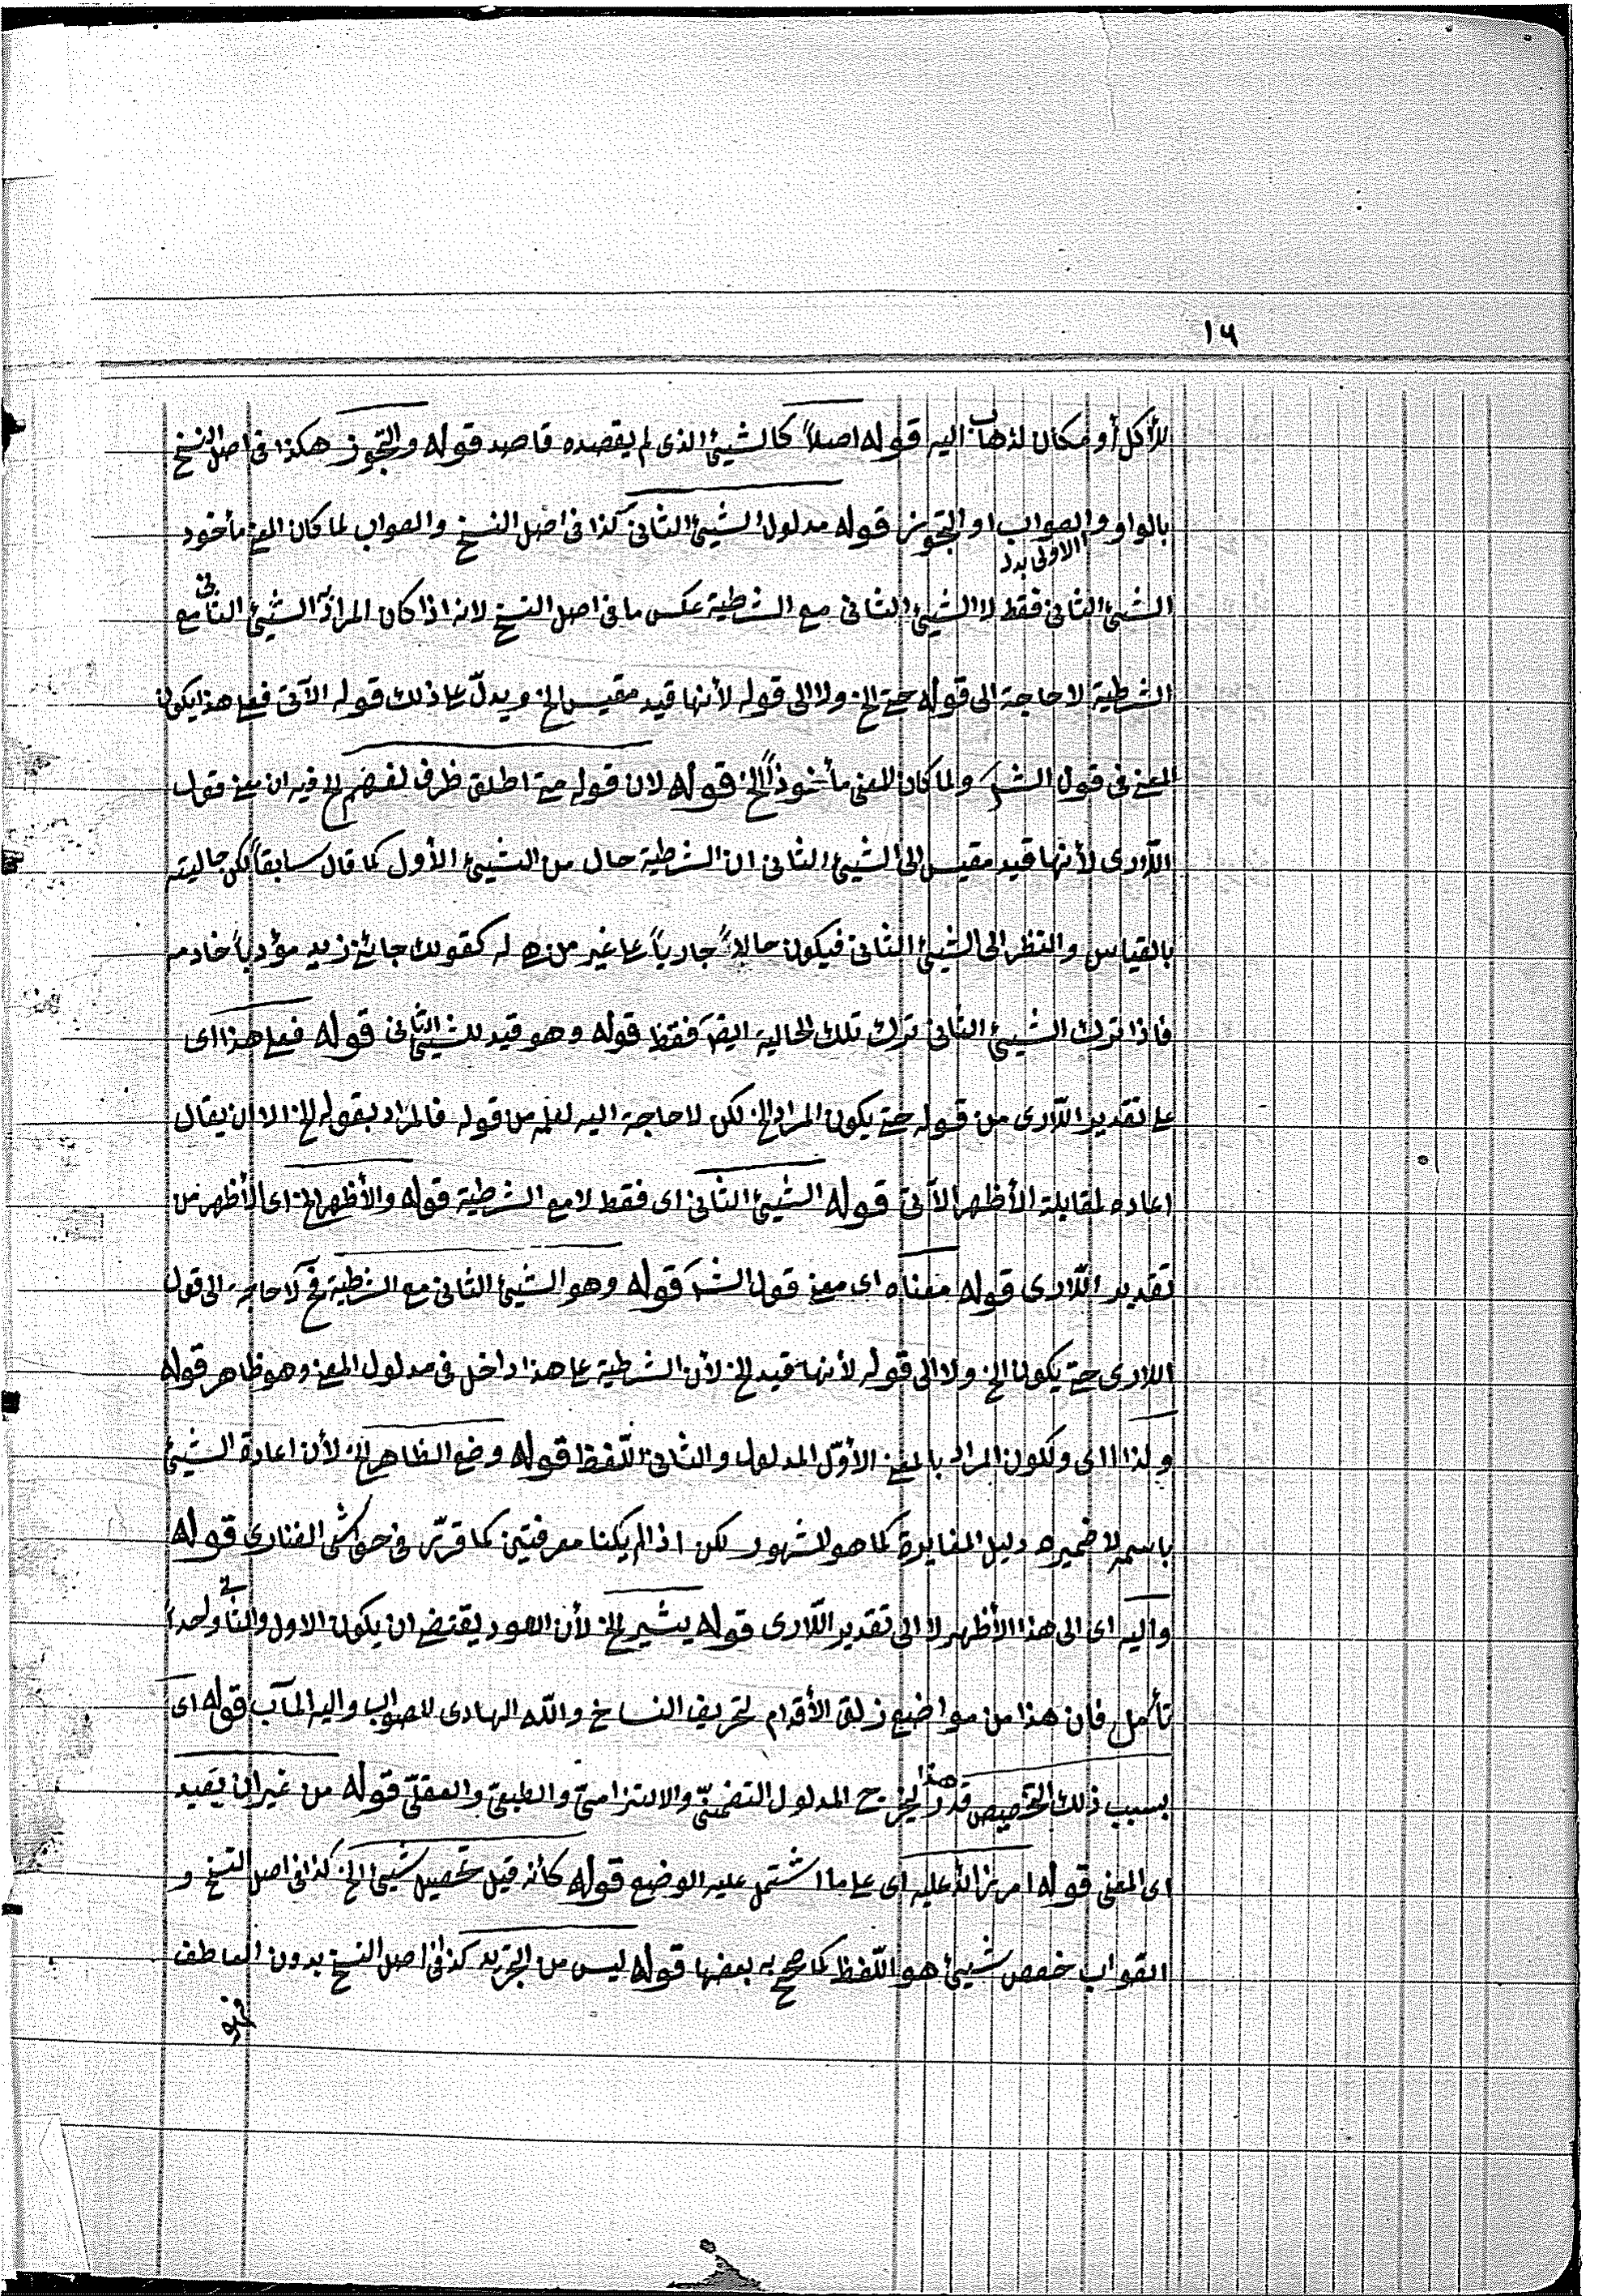 ١٦
للأكل أو مكان لذهاب اليه قوله اصلاً كالشيئ الذى لم يقصده قاصد قوله والتجوز هكذا فى اصل النسخ
بالواو والصواب او التجوز قوله مدلول الشيئ الثانى كذا فى اصل النسخ والصواب لما كان المعنى مأخوذ
الاولى بدل
الشيئ الثانى فقط لا الشيئ الثانى مع الشرطية عكس ما فى اصل النسخ لانه اذا كان المراد به الشيئ الثانى مع
الشرطية لا حاجة الى قوله حتى الخ ولا الى قوله لأنها قيد مقيس الخ ويدلّ على ذلك قوله الآتى فعلى هذا يكون
المعنى فى قول الش ولما كان المعنى مأخوذاً الخ قوله لان قوله متى اطلق ظرف لفهم الخ فيه ان معنى قول
اللّارى لأنها قيد مقيس الى الشيئ الثانى ان الشرطية حال من الشيئ الأول كما قال سابقاً لكن حاليته
بالقياس والنظر الى الشيئ الثانى فيكون حالاً جارياً على غير من هى له كقولك جائنى زيد مؤدباً خادمه
فاذا ترك الشيئ الثانى ترك تلك الحالية ايضً فقط قوله وهو قيد للشيئ الثانى قوله فعلى هذا اى
على تقدير اللّارى من قوله حتى يكون المراد الخ لكن لا حاجة اليه لعلمه من قوله فالمراد بقوله الخ الا ان يقال
اعاده لمقابلة الأظهر الآتى قوله الشيئ الثانى اى فقط لا مع الشرطية قوله والأظهر الخ اى الأظهر من
تقدير اللّارى قوله معناه اى معنى قول الش قوله وهو الشيئ الثانى مع الشرطية فح لا حاجة الى قول
اللارى حتى يكون الخ ولا الى قوله لأنها قيد الخ لأن الشرطية على هذا داخل فى مدلول المعنى وهو ظاهر قوله
ولذا اى ولكون المراد بالمعنى الأوّل المدلول والثانى اللّفظ قوله وضع الظاهر الخ لأن اعادة الشيئ
باسمه لا ضميره دليل المغايرة كما هو المشهور لكن اذا لم يكنا معرفتين كما قرّر فى حواشى الفنارى قوله
واليه اى الى هذا الأظهر لا الى تقدير اللّارى قوله يشير الخ لأن العود يقتضى ان يكون الاول والثانى واحداً
تأمل فان هذا من مواضع زلق الأقدام لتحريف النساخ والله الهادى للصواب واليه المآب قوله اى
بسبب ذلك التخصيص قدر هذا ليخرج المدلول التضمنىّ والالتزامىّ والطبعىّ والعقلىّ قوله من غير ان يقيد
اى المعنى قوله امر زائد عليه اى على ما اشتمل عليه الوضع قوله كأنه قيل تحصيل شيئ الخ كذا فى اصل النسخ و
الصواب خصص شيئ هو اللّفظ كما صحح به بعضها قوله ليس من التجريد كذا فى اصل النسخ بدون العاطف